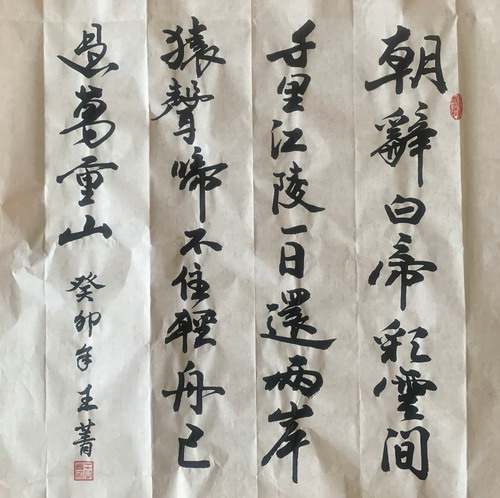 朝辭白帝彩雲间
千里江陵一日還兩岸
猿聲啼不住輕舟已
過萬重山
癸卯年王菁